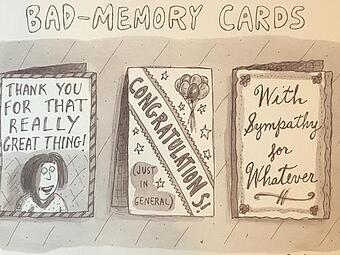 BAD-MEMORY CARDS
THANK YOU
FOR THAT
REALLY
GREAT THING!
CONGRATULATIONS!
(JUST
IN
GENERAL)
With
Sympathy
for
Whatever